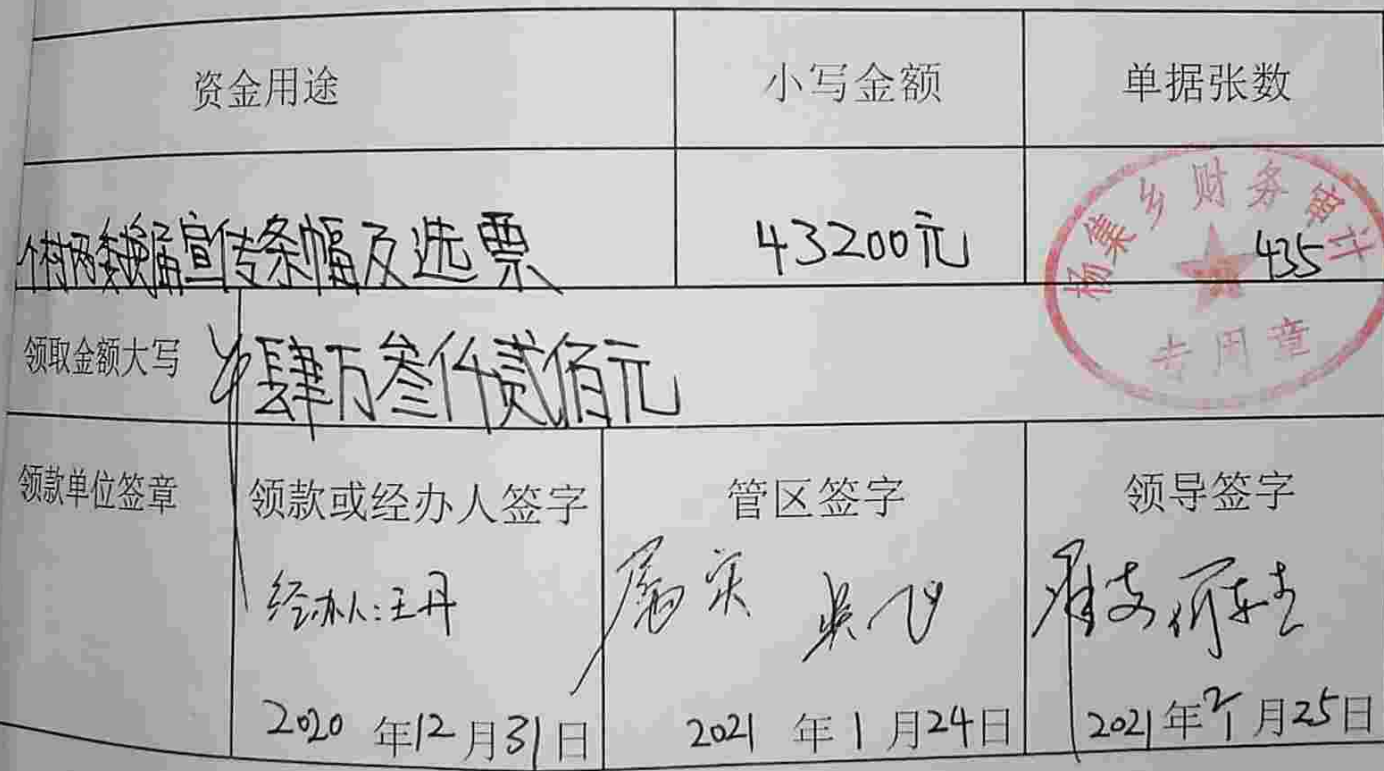 资金用途 小写金额 单据张数
个村两委换届宣传条幅及选票 43200元 435
杨集乡财务审计
专用章
领取金额大写 肆万叁仟贰佰元
领款单位签章 领款或经办人签字 管区签字 领导签字
经办人:王丹 属实 吴飞
2020年12月31日 2021年1月24日 2021年 月25日